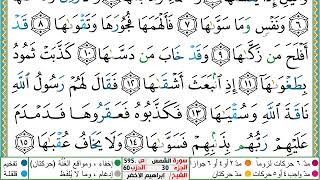 ٦ وَنَفْسٍ وَمَا سَوَّىٰهَا ٧ فَأَلْهَمَهَا فُجُورَهَا وَتَقْوَىٰهَا ٨ قَدْ
أَفْلَحَ مَن زَكَّىٰهَا ٩ وَقَدْ خَابَ مَن دَسَّىٰهَا ١٠ كَذَّبَتْ ثَمُودُ
بِطَغْوَىٰهَآ ١١ إِذِ ٱنۢبَعَثَ أَشْقَىٰهَا ١٢ فَقَالَ لَهُمْ رَسُولُ ٱللَّهِ
نَاقَةَ ٱللَّهِ وَسُقْيَٰهَا ١٣ فَكَذَّبُوهُ فَعَقَرُوهَا فَدَمْدَمَ
عَلَيْهِمْ رَبُّهُم بِذَنۢبِهِمْ فَسَوَّىٰهَا ١٤ وَلَا يَخَافُ عُقْبَٰهَا ١٥
سورة الشمس ص 595
الجزء 30 الحزب 60
الشيخ/ ابراهيم الاخضر
مدّ ٦ حركات لزوماً مدّ ٢ أو ٤ أو ٦ جوازاً
إخفاء، ومواقع الغُنَّة (حركتان) تفخيم
إدغام، وما لا يُلفظ قلقلة